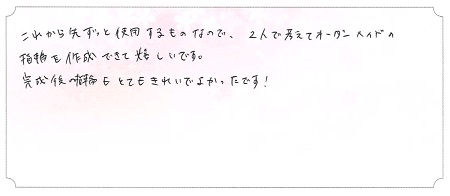 これから先ずっと使用するものなので、2人で考えてオーダーメイドの
指輪を作成できて嬉しいです。
完成後の指輪もとてもきれいでよかったです!